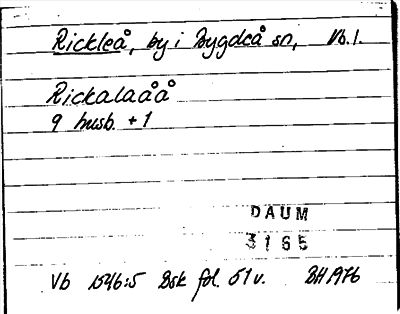 Rickleå, by i Bygdeå sn, Vb.l.
Rickalaåå
9 husb. + 1
DAUM
3165
Vb 1546:5 Bsk fol. 51v. BH 1976